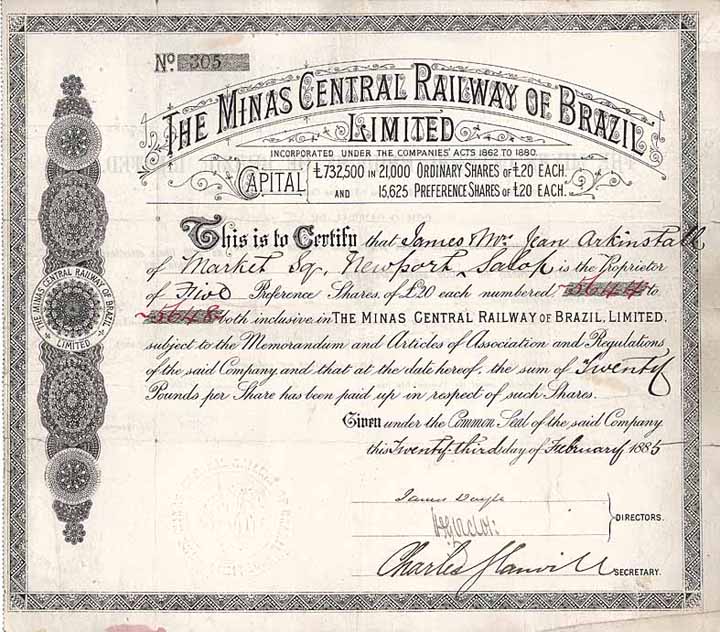 No. 305
THE MINAS CENTRAL RAILWAY OF BRAZIL
LIMITED
INCORPORATED UNDER THE COMPANIES' ACTS 1862 TO 1880.
CAPITAL £732,500 IN 21,000 ORDINARY SHARES OF £20 EACH.
AND 15,625 PREFERENCE SHARES OF £20 EACH.
This is to Certify that James & Mrs Jean Arkinstall
of Market Sq. Newport, Salop is the Proprietor
of Five Preference Shares of £20 each numbered 5644 to
5648 both inclusive in THE MINAS CENTRAL RAILWAY OF BRAZIL, LIMITED.
subject to the Memorandum and Articles of Association and Regulations
of the said Company and that at the date hereof, the sum of Twenty
Pounds per Share has been paid up in respect of such Shares.
Given under the Common Seal of the said Company
this Twenty-third day of February 1885
James Doyle
DIRECTORS.
Charles
SECRETARY.
THE MINAS CENTRAL RAILWAY OF BRAZIL
LIMITED